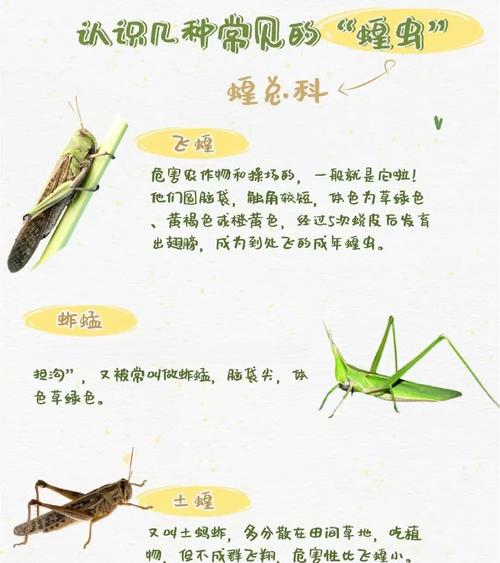 认识几种常见的“蝗虫”
蝗总科
飞蝗
危害农作物和操场的，一般就是它啦！
他们圆脑袋，触角较短，体色为草绿色
、黄褐色或橙黄色，经过5次蜕皮后发育
出翅膀，成为到处飞的成年蝗虫。
蚱蜢
担沟”，又被常叫做蚱蜢，脑袋尖，体
色草绿色。
土蝗
又叫土蚂蚱，多分散在田间草地，吃植
物，但不成群飞翔，危害性比飞蝗小。